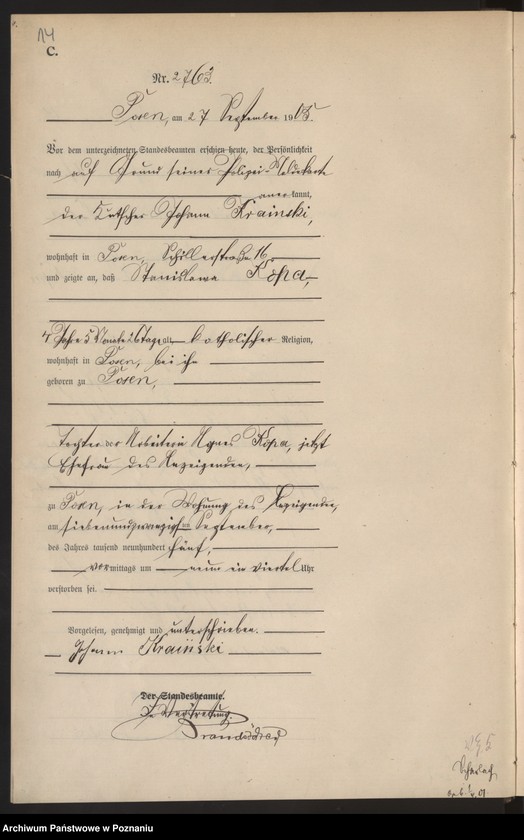 14
C.
Nr. 2763.
Posen, am 27 September 1905
Vor dem unterzeichneten Standesbeamten erschien heute, der Persönlichkeit
nach auf Grund seiner Polizei-Meldekarte
anerkannt,
der Kutscher Johann Krainski,
wohnhaft in Posen, Schillerstraße 16
und zeigte an, daß Stanislawa Kopa,
4 Jahre 5 Monate 26 Tage alt katholischer Religion,
wohnhaft in Posen, bei ihm
geboren zu Posen,
Tochter der Arbeiterin Agnes Kopa, jetzt
Ehefrau des Anzeigenden,
zu Posen, in der Wohnung des Anzeigenden,
am siebenundzwanzigsten September,
des Jahres tausend neunhundert fünf,
vormittags um neun ein viertel Uhr
verstorben sei.
Vorgelesen, genehmigt und unterschrieben.
Johann Kraiński
Der Standesbeamte.
In Vertretung.
Scharlach
Archiwum Państwowe w Poznaniu